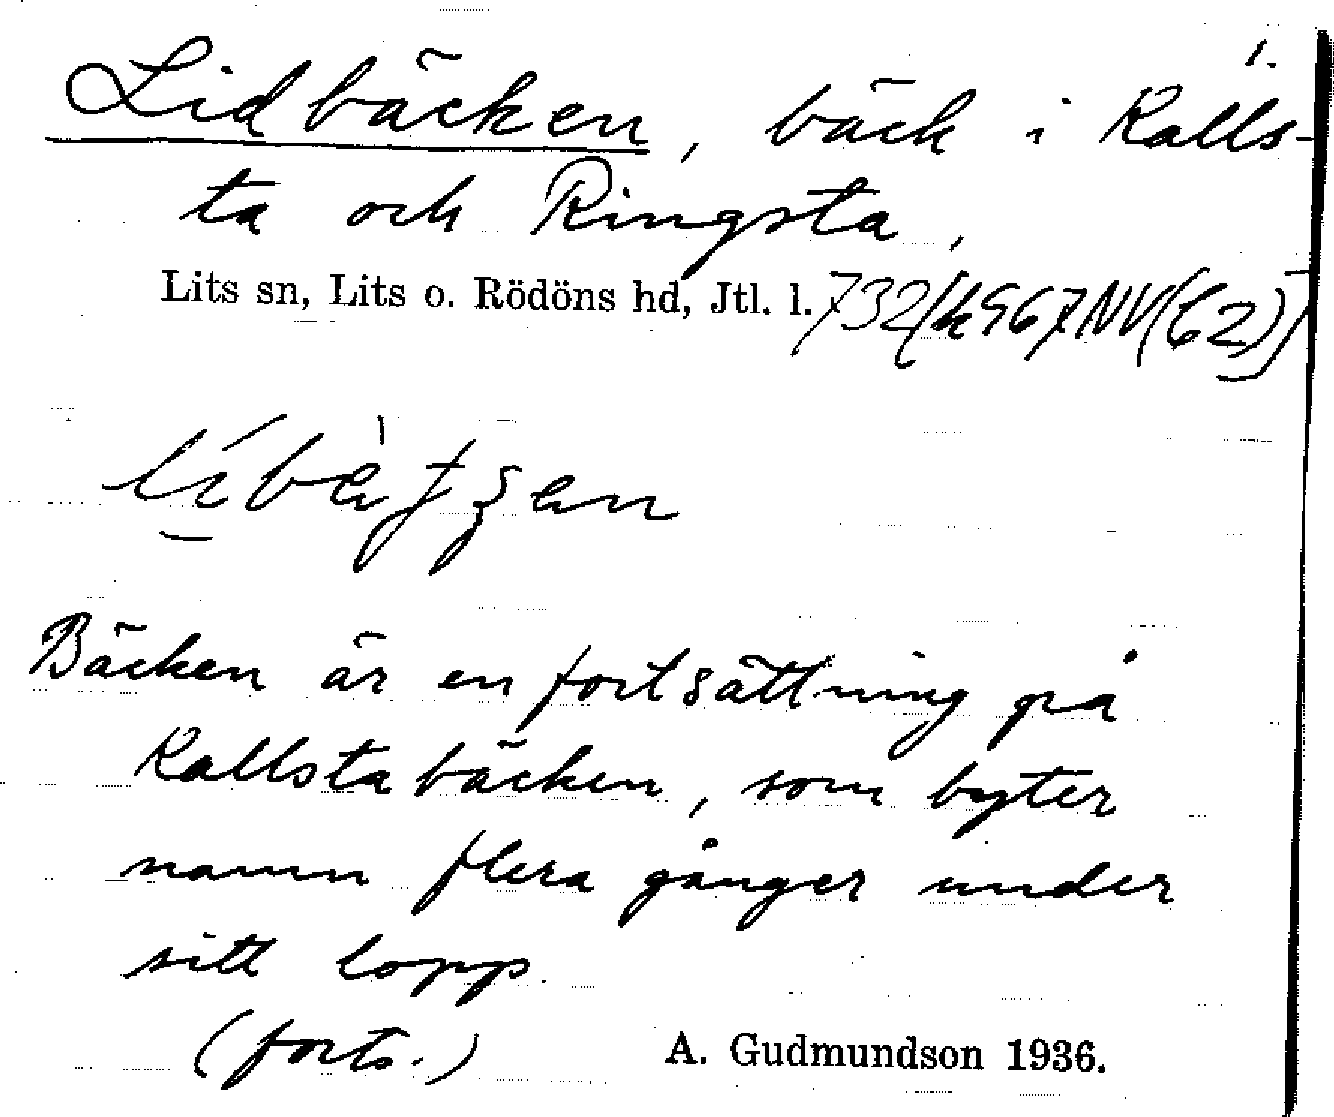 1.
Lidbäcken, bäck i Kalls-
ta och Ringsta,
Lits sn, Lits o. Rödöns hd, Jtl. l.
Bäcken är en fortsättning på
Kallstabäcken, som byter
namn flera gånger under
sitt lopp.
(forts.)
A. Gudmundson 1936.